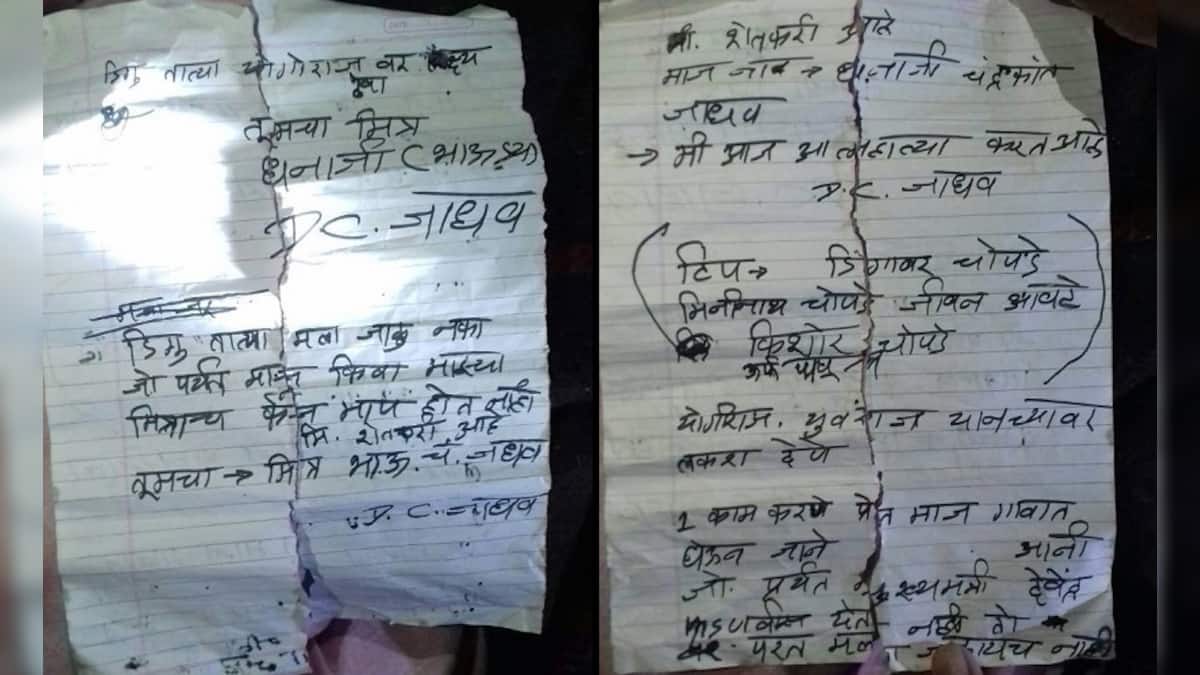 डिगु तात्या योगीराज वर लक्ष्य
ठेवा
तूमचा मित्र
धनाजी (भाऊड्या)
D C. जाधव
डिगु तात्या मला जाळु नका
जो पर्यंत माझे किंवा माझ्या
मित्राच्य कर्ज माप होत नाही
मि. शेतकरी आहे
तूमचा → मित्र भाऊ. चं. जाधव
D. C. जाधव
मी. शेतकरी आहे
माज नाव → धनाजी चंद्रकांत
जाधव
→ मी आज आत्महात्या करत आहे
D. C. जाधव
टिप → डिंगाबर चोपडे
चोपडे जीवन आवटे
किशोर चोपडे
योगीराज. युवराज यानच्यावर
लकश देणे
1 काम करणे प्रेत माज गावात
घेऊन जाने आनी
जो. पर्यंत मुख्यमंत्री देवेंद्र
फडणविस येत नही तो
परत मला जळायच नाही